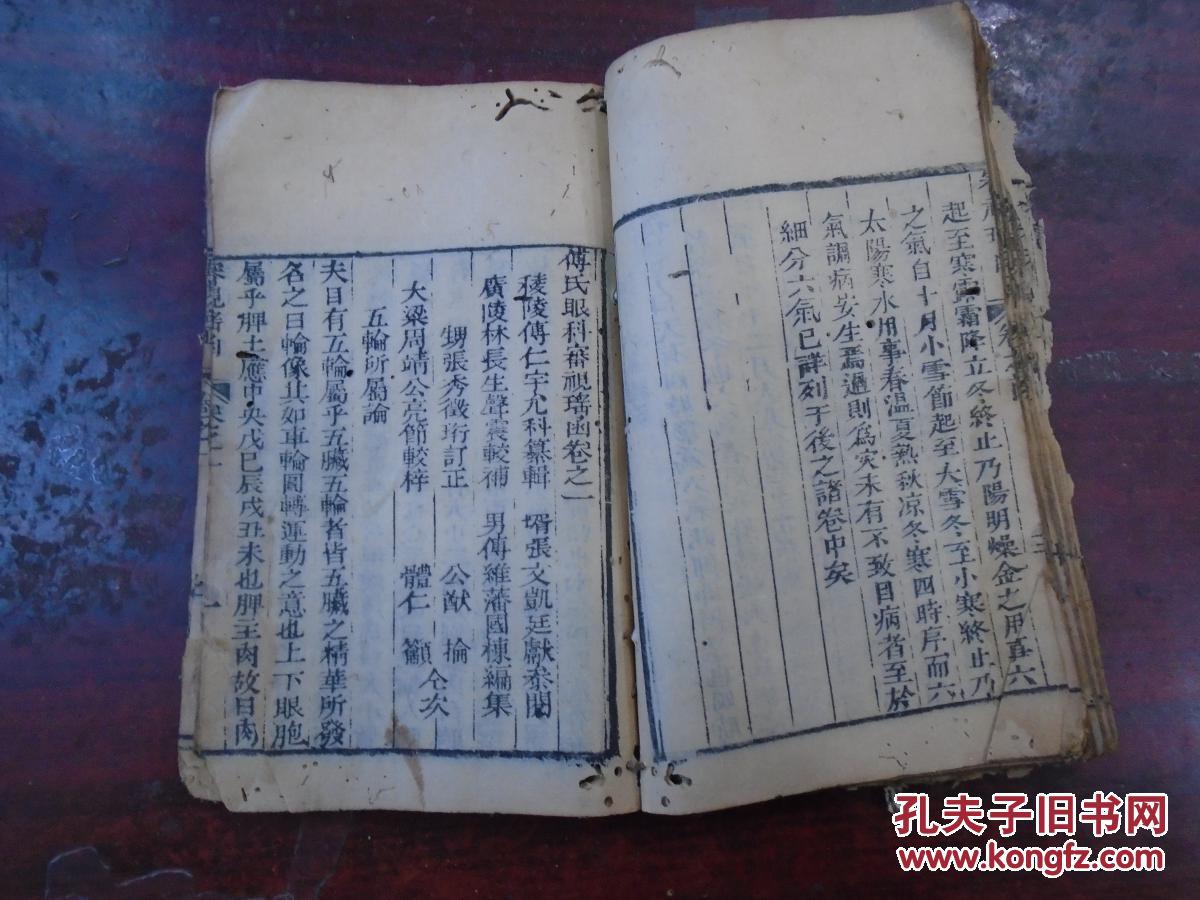 起至寒露霜降立冬終止乃陽明燥金之用直六
之氣自十月小雪節起至大雪冬至小寒終止乃
太陽寒水用事春溫夏熱秋凉冬寒四時序而六
氣調病安生焉過則爲灾未有不致目病者至於
細分六氣已詳列于後之諸卷中矣
傅氏眼科審視瑤函卷之一
秣陵傅仁宇允科纂輯 壻張文凱廷獻叅閱
廣陵林長生聲震較補 男傅維藩國棟編集
甥張秀徵珩訂正 公猷 掄
大梁周靖公亮節較梓 體仁 籲 仝次
五輪所屬論
夫目有五輪屬乎五臟五輪者皆五臟之精華所發
名之曰輪像其如車輪圓轉運動之意也上下眼胞
屬乎脾土應中央戊巳辰戌丑未也脾主肉故曰肉
孔夫子旧书网
www.kongfz.com